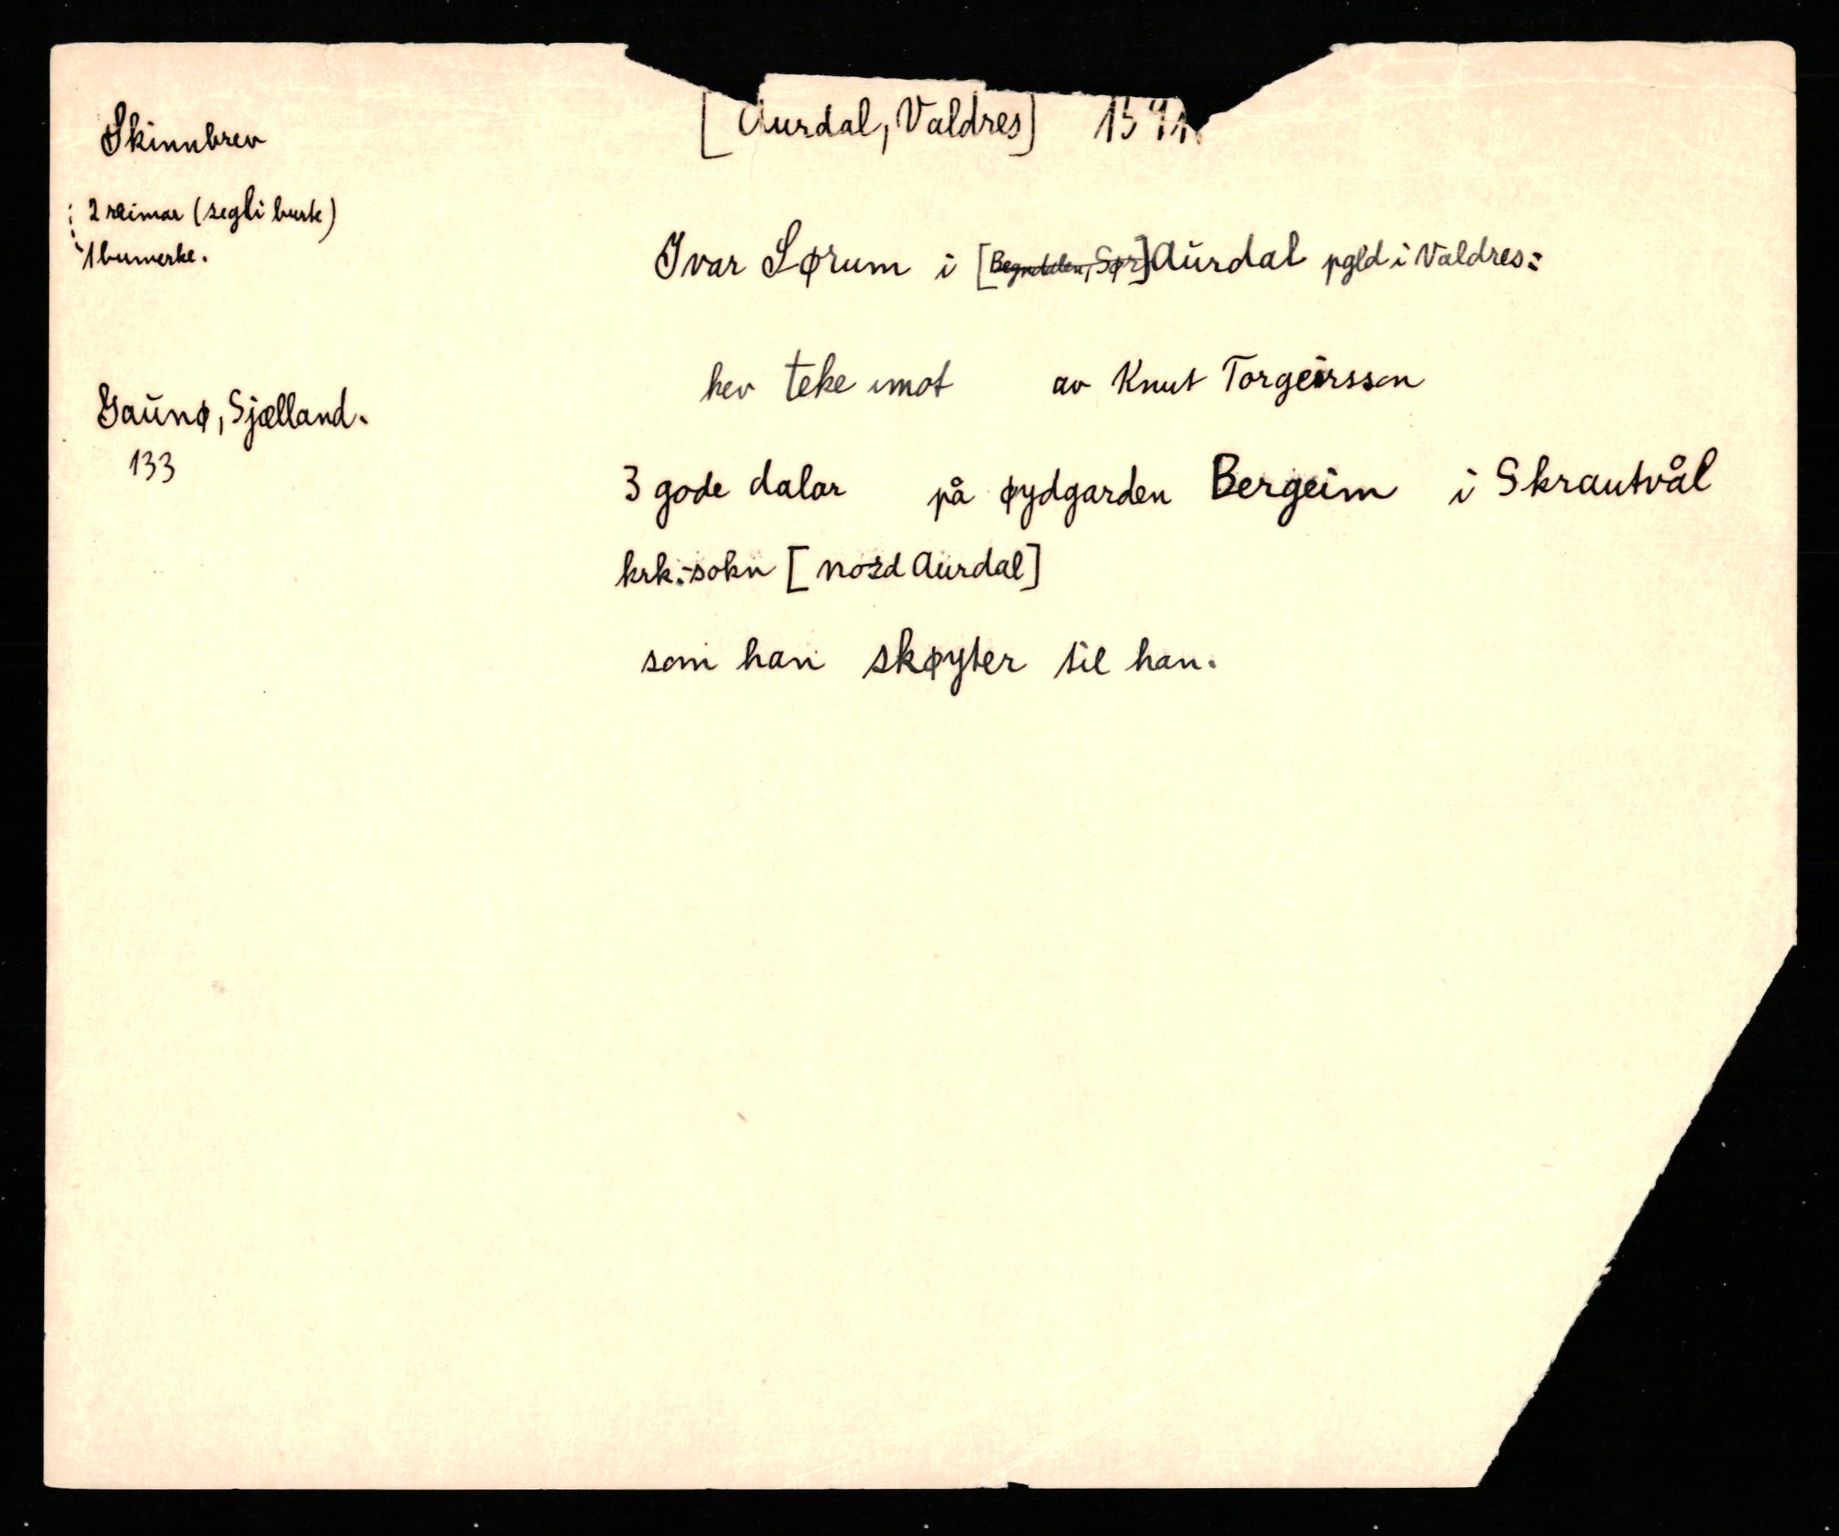 Skinnbrev
2 reimar (segli burte)
1 bumerke.
Gaunø, Sjælland.
133
[Aurdal, Valdres]
Ivar Sørum i [Begndalen, Sør] Aurdal pgld i Valdres:
hev teke imot av Knut Torgeirsson
3 gode dalar på øydgarden Bergeim i Skrautvål
krk.-sokn [nord Aurdal]
som han skøyter til han.